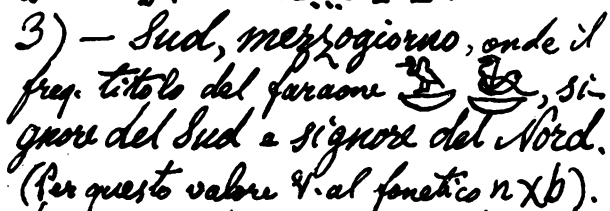 3) — Sud, mezzogiorno, onde il
freq. titolo del faraone , si-
gnore del Sud e signore del Nord.
(Per questo valore V. al fonetico nxb).